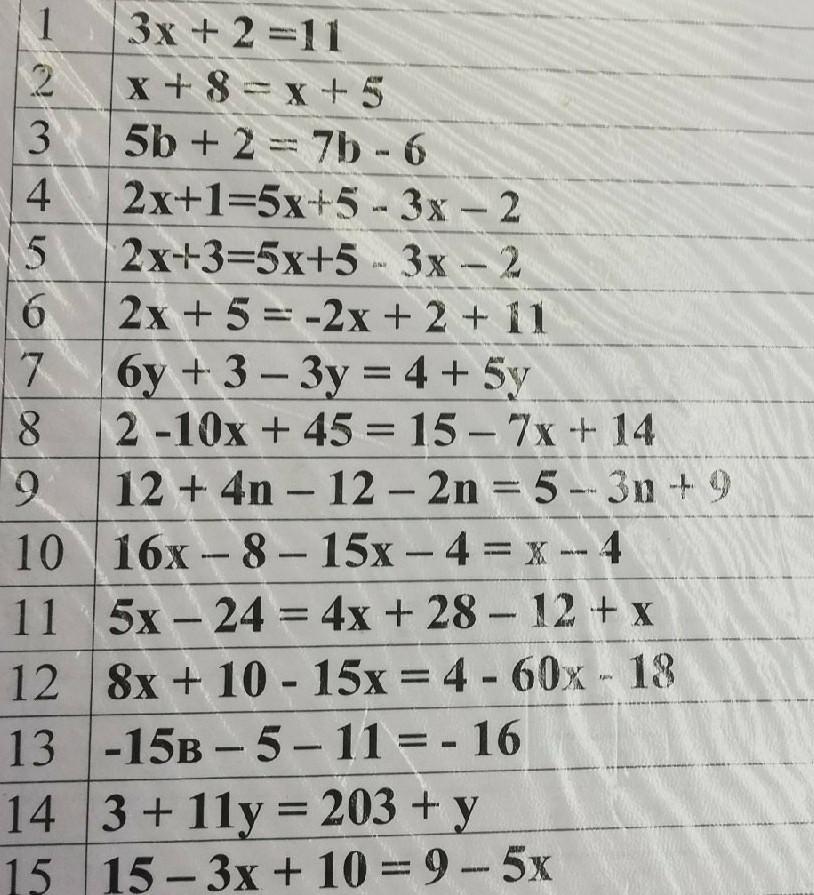 1 3x + 2 =11
2 x + 8 = x + 5
3 5b + 2 = 7b - 6
4 2x+1=5x+5 - 3x – 2
5 2x+3=5x+5 - 3x – 2
6 2x + 5 = -2x + 2 + 11
7 6y + 3 – 3y = 4 + 5y
8 2 -10x + 45 = 15 – 7x + 14
9 12 + 4n – 12 – 2n = 5 – 3n + 9
10 16x – 8 – 15x – 4 = x – 4
11 5x – 24 = 4x + 28 – 12 + x
12 8x + 10 - 15x = 4 - 60x - 18
13 -15в – 5 – 11 = - 16
14 3 + 11y = 203 + y
15 15 – 3x + 10 = 9 – 5x